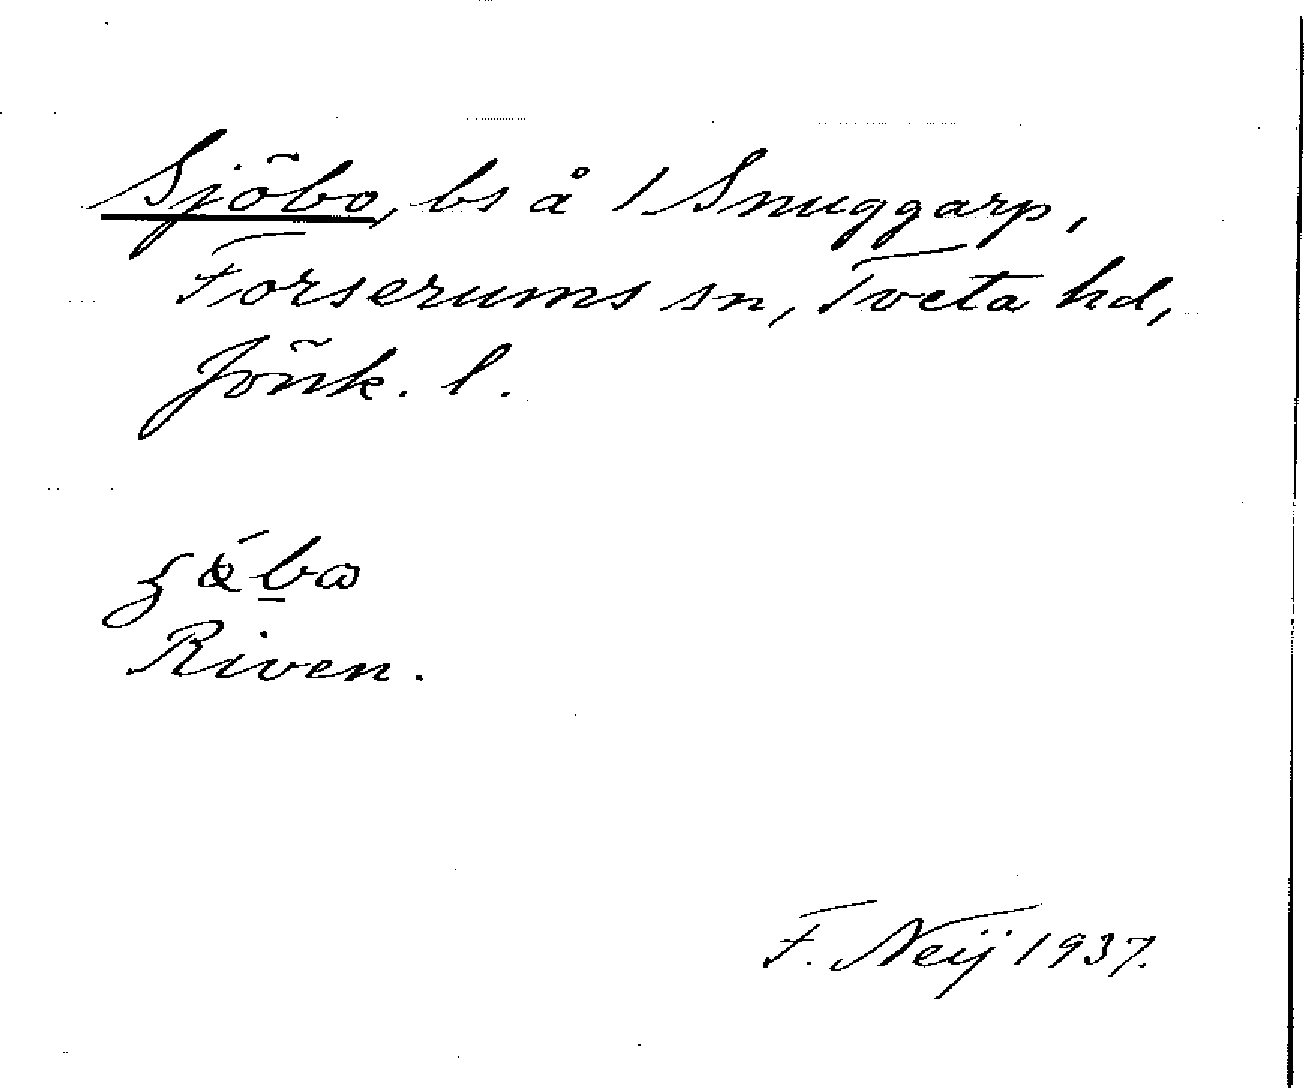 Sjöbo, bs å 1 Snuggarp,
Forserums sn, Tveta hd,
Jönk. l.
Riven.
F. Neij 1937.